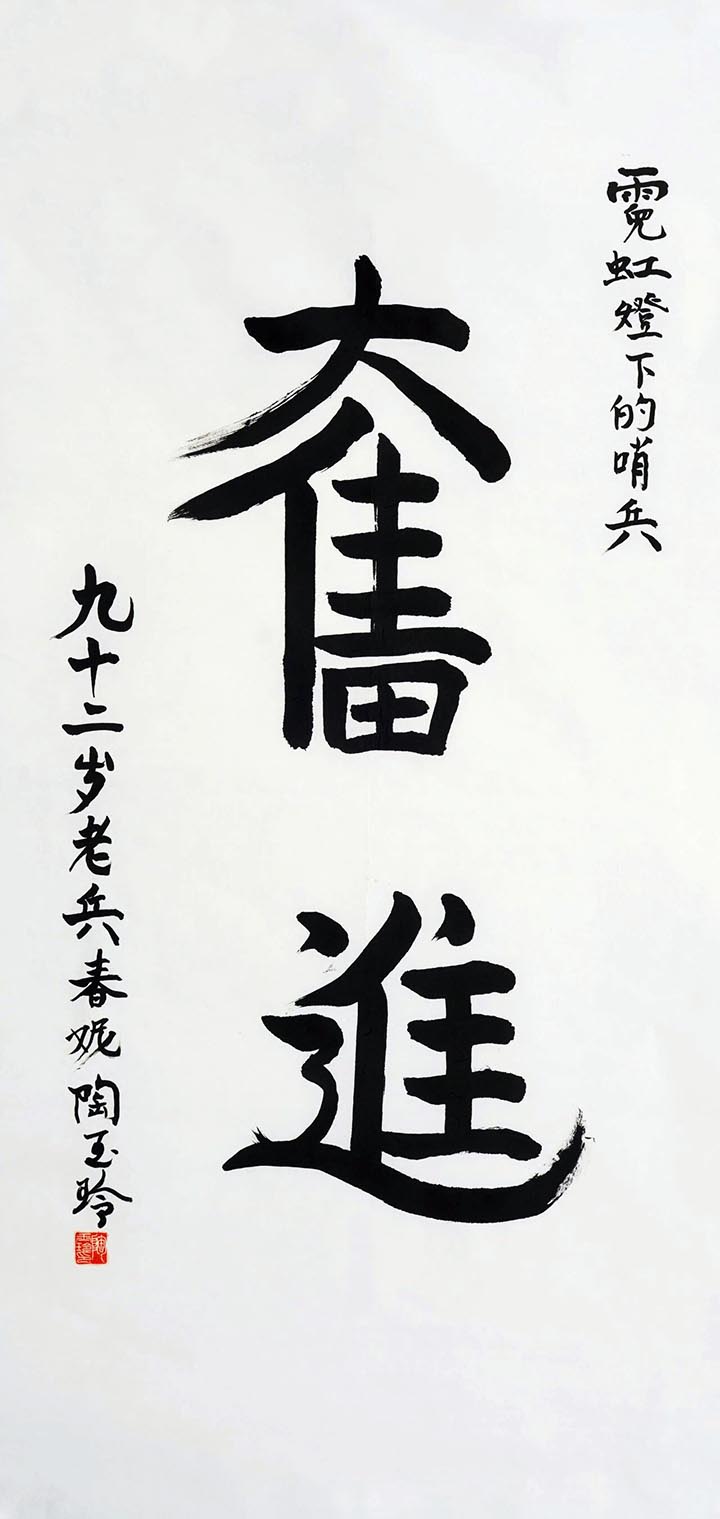 霓虹燈下的哨兵
奮進
九十二岁老兵春妮陶玉玲
陶玉玲